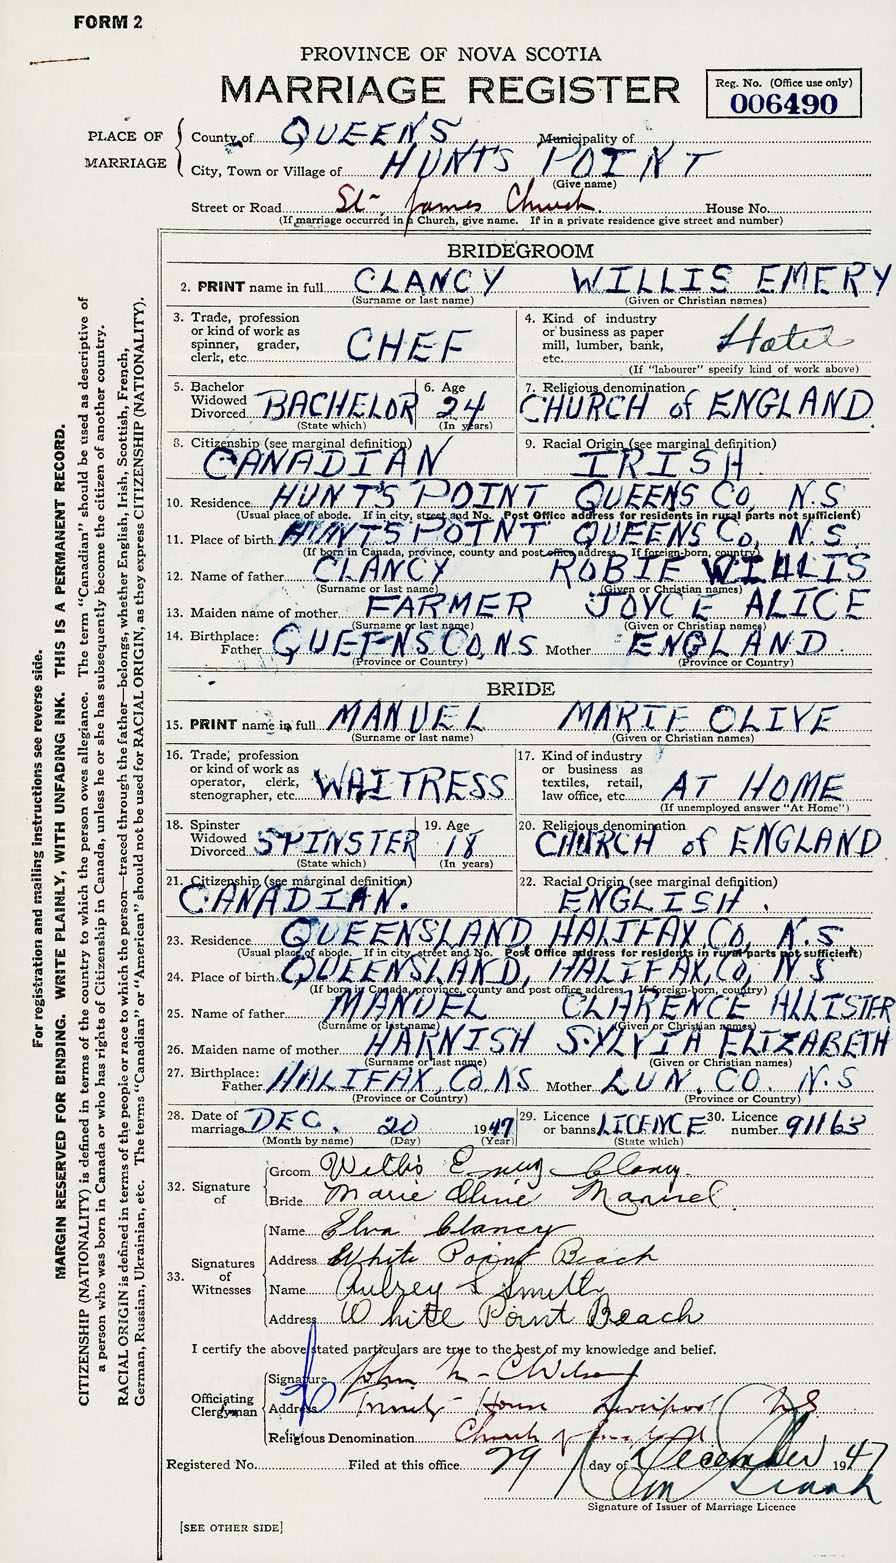 FORM 2
PROVINCE OF NOVA SCOTIA
MARRIAGE REGISTER
Reg. No. (Office use only)
006490
PLACE OF MARRIAGE
County of QUEENS Municipality of
City, Town or Village of HUNTS POINT
(Give name)
Street or Road St. James Church. House No.
(If marriage occurred in a Church, give name. If in a private residence give street and number)
BRIDEGROOM
2. PRINT name in full CLANCY WILLIS EMERY
(Surname or last name) (Given or Christian names)
3. Trade, profession or kind of work as spinner, grader, clerk, etc. CHEF
4. Kind of industry or business as paper mill, lumber, bank, etc. Hotel
(If "labourer" specify kind of work above)
5. Bachelor Widowed Divorced BACHELOR
(State which)
6. Age 24
(In years)
7. Religious denomination
CHURCH of ENGLAND
8. Citizenship (see marginal definition)
CANADIAN
9. Racial Origin (see marginal definition)
IRISH.
10. Residence HUNTS POINT QUEENS Co, N.S
(Usual place of abode. If in city, street and No. Post Office address for residents in rural parts not sufficient)
11. Place of birth HUNTS POINT QUEENS Co, N.S.
(If born in Canada, province, county and post office address. If foreign-born, country)
12. Name of father CLANCY ROBIE WILLIS
(Surname or last name) (Given or Christian names)
13. Maiden name of mother FARMER JOYCE ALICE
(Surname or last name) (Given or Christian names)
14. Birthplace: Father QUEENS CO, N.S Mother ENGLAND.
(Province or Country) (Province or Country)
BRIDE
15. PRINT name in full MANUEL MARIE OLIVE
(Surname or last name) (Given or Christian names)
16. Trade, profession or kind of work as operator, clerk, stenographer, etc. WAITRESS
17. Kind of industry or business as textiles, retail, law office, etc. AT HOME
(If unemployed answer "At Home")
18. Spinster Widowed Divorced SPINSTER
(State which)
19. Age 18
(In years)
20. Religious denomination
CHURCH of ENGLAND
21. Citizenship (see marginal definition)
CANADIAN.
22. Racial Origin (see marginal definition)
ENGLISH.
23. Residence QUEENSLAND, HALIFAX, CO, N.S
(Usual place of abode. If in city, street and No. Post Office address for residents in rural parts not sufficient)
24. Place of birth QUEENSLAND, HALIFAX, CO, N S
(If born in Canada, province, county and post office address. If foreign-born, country)
25. Name of father MANUEL CLARENCE ALLISTER
(Surname or last name) (Given or Christian names)
26. Maiden name of mother HARNISH SYLVIA ELIZABETH
(Surname or last name) (Given or Christian names)
27. Birthplace: Father HALIFAX, CO NS Mother LUN. CO. N.S
(Province or Country) (Province or Country)
28. Date of marriage DEC. 20 1947
(Month by name) (Day) (Year)
29. Licence or banns LICENCE
(State which)
30. Licence number 91163
32. Signature of
Groom Willis Emery Clancy.
Bride Marie Olive Manuel.
33. Signatures of Witnesses
Name Elva Clancy
Address White Point Beach
Name Aubrey S Smith
Address White Point Beach
I certify the above stated particulars are true to the best of my knowledge and belief.
Officiating Clergyman
Signature John
Address Trinity House Liverpool NS
Religious Denomination Church of England
Registered No. Filed at this office 29 day of December 1947
Signature of Issuer of Marriage Licence
[SEE OTHER SIDE]
For registration and mailing instructions see reverse side.
MARGIN RESERVED FOR BINDING. WRITE PLAINLY, WITH UNFADING INK. THIS IS A PERMANENT RECORD.
CITIZENSHIP (NATIONALITY) is defined in terms of the country to which the person owes allegiance. The term "Canadian" should be used as descriptive of
a person who was born in Canada or who has rights of Citizenship in Canada, unless he or she has subsequently become the citizen of another country.
RACIAL ORIGIN is defined in terms of the people or race to which the person—traced through the father—belongs, whether English, Irish, Scottish, French,
German, Russian, Ukrainian, etc. The terms "Canadian" or "American" should not be used for RACIAL ORIGIN, as they express CITIZENSHIP (NATIONALITY).